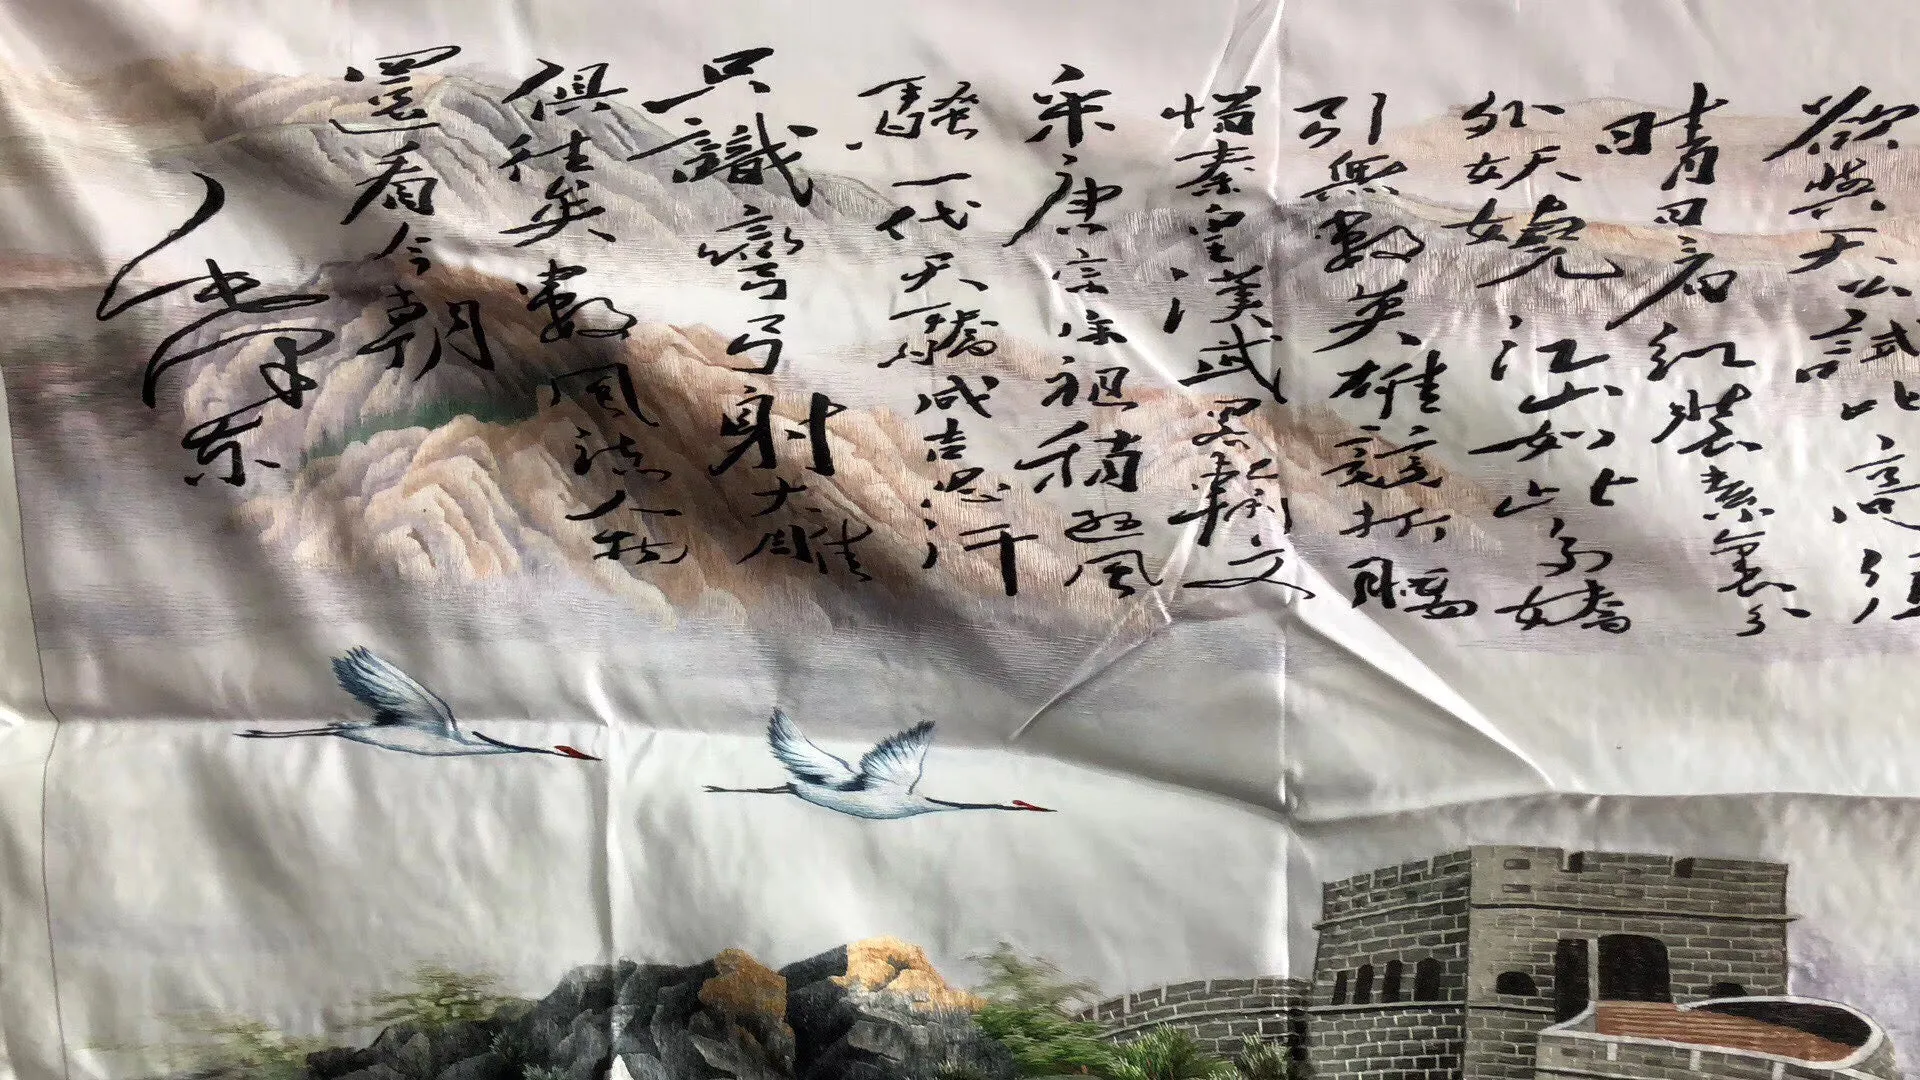 欲與天公試比高須
晴日看紅裝素裹分
外妖嬈江山如此多嬌
引無數英雄競折腰
惜秦皇漢武畧輸文
采唐宗宋祖稍遜風
騷一代天驕成吉思汗
只識彎弓射大雕
俱往矣數風流人物
還看今朝
毛澤東